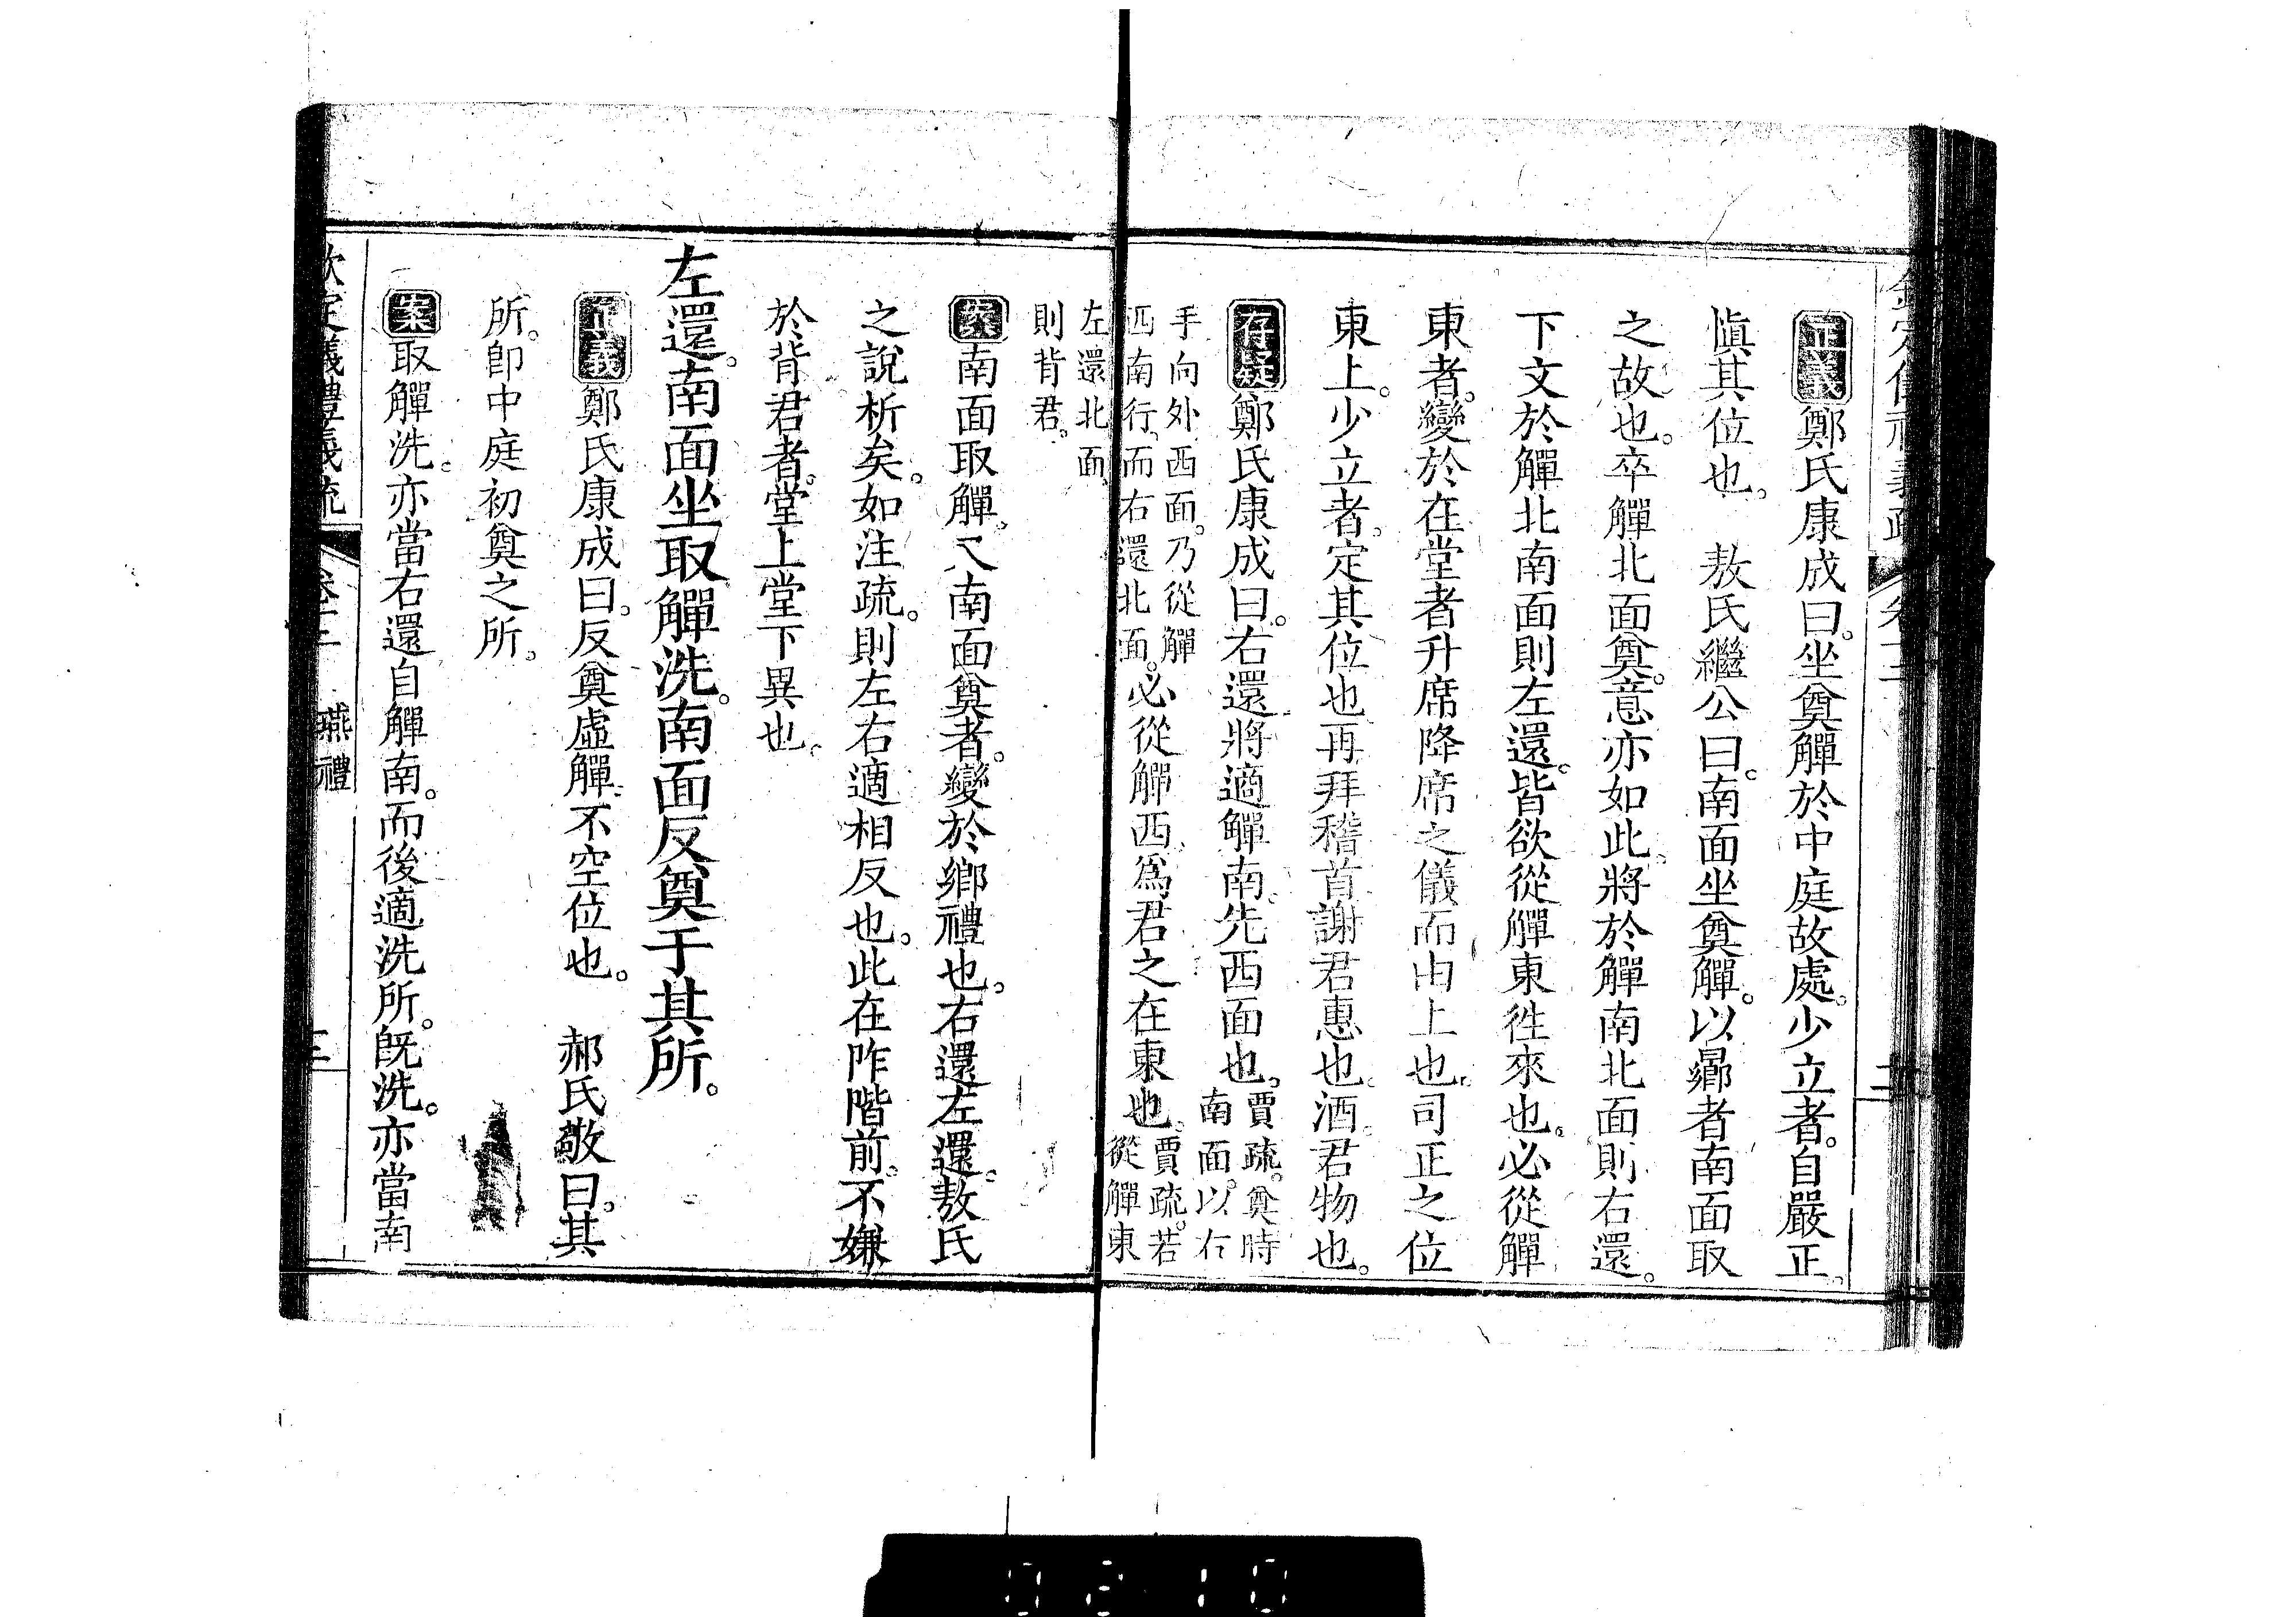 正義鄭氏康成曰。坐奠觶於中庭故處。少立者。自嚴正。
愼其位也。　敖氏繼公曰。南面坐奠觶。以曏者南面取
之故也。卒觶北面奠。意亦如此。將於觶南北面則右還。
下文於觶北南面則左還。皆欲從觶東徃來也。必從觶
東者。變於在堂者升席降席之儀而由上也。司正之位
東上。少立者。定其位也再拜稽首謝君惠也。酒。君物也。
存疑鄭氏康成曰。右還將適觶南。先西面也。賈疏。奠時南面。以右
手向外西面。乃從觶西南行。而右還北面。必從觶西。爲君之在東也。賈疏。若從觶東
左還北面則背君。
案南面取觶。又南面奠者。變於鄉禮也。右還左還。敖氏
之說析矣。如注疏。則左右適相反也。此在阼階前。不嫌
於背君者。堂上堂下異也。
左還。南面坐取觶洗。南面反奠于其所。
正義鄭氏康成曰。反奠虛觶。不空位也。　郝氏敬曰。其
所。卽中庭初奠之所。
案取觶洗。亦當右還自觶南。而後適洗所。旣洗。亦當南
欽定儀禮義疏　燕禮　三